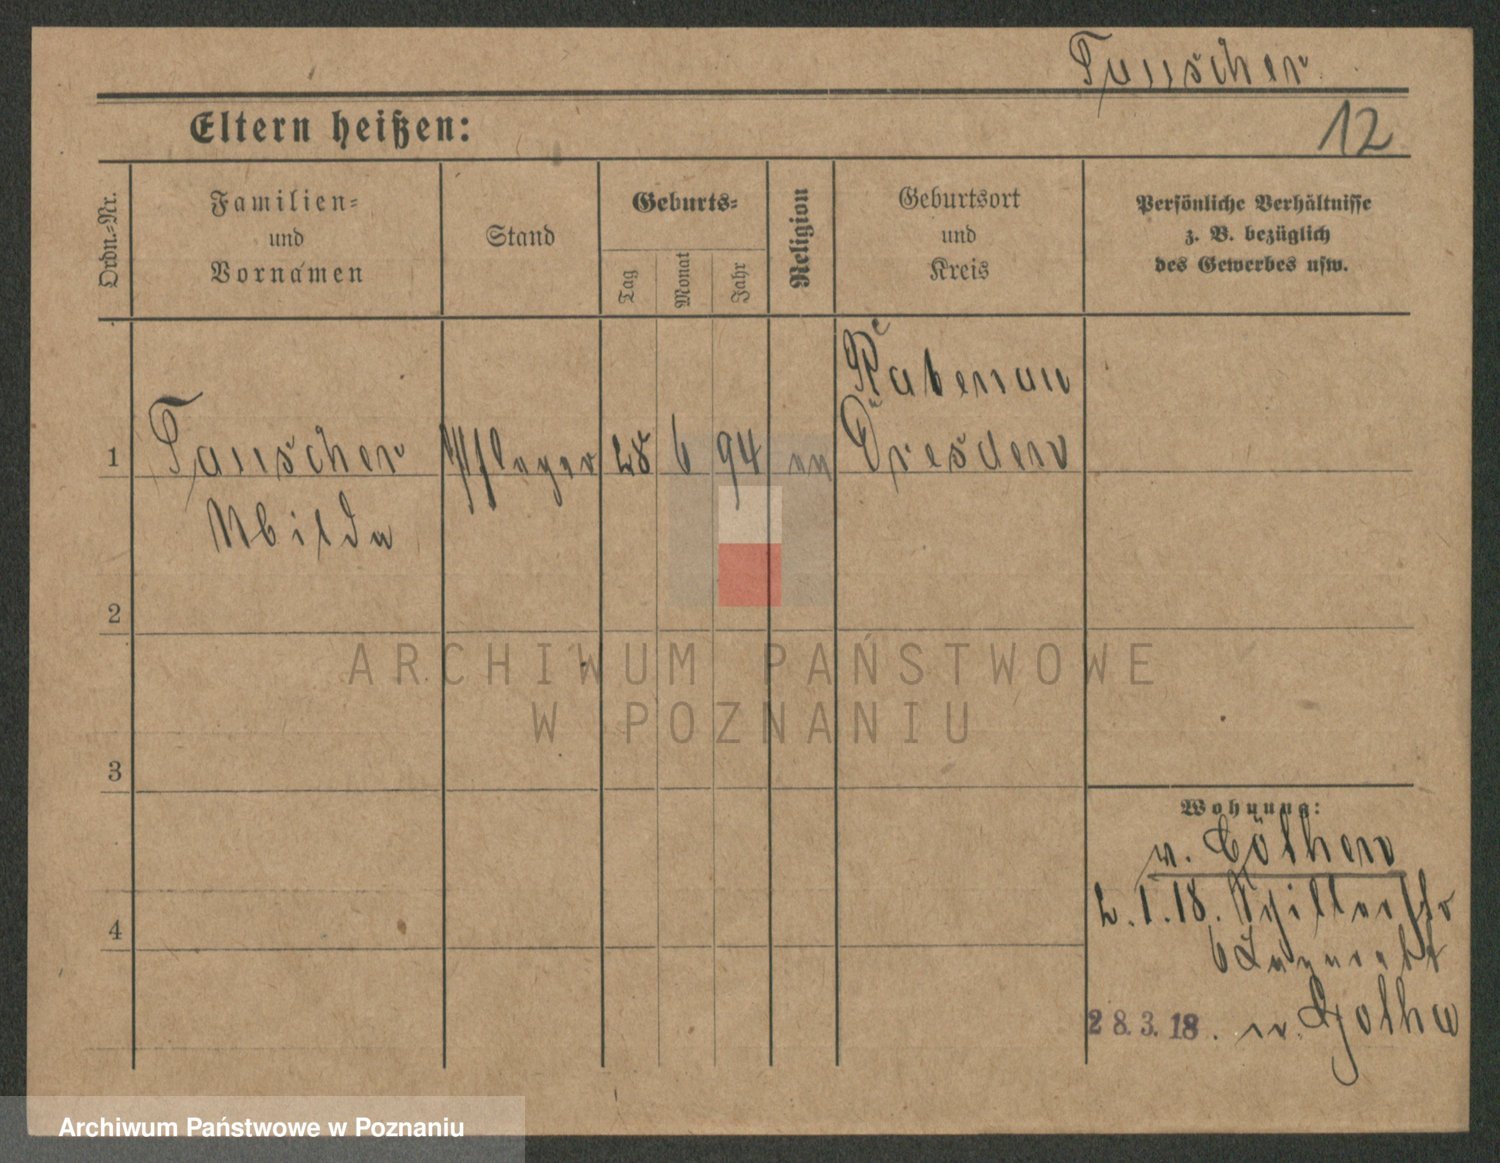 Tauscher
Eltern heißen:
12
Ordn.-Nr.
Familien-
und
Vornamen
Stand
Geburts-
Tag
Monat
Jahr
Religion
Geburtsort
und
Kreis
Persönliche Verhältnisse
z. B. bezüglich
des Gewerbes usw.
1
Tauscher
Milda
28
6
94
ev
Rabenau
Dresden
2
3
4
Wohnung:
v. Cöthen
2.1.18.
6
28.3.18. n. Gotha
ARCHIWUM PAŃSTWOWE
W POZNANIU
Archiwum Państwowe w Poznaniu